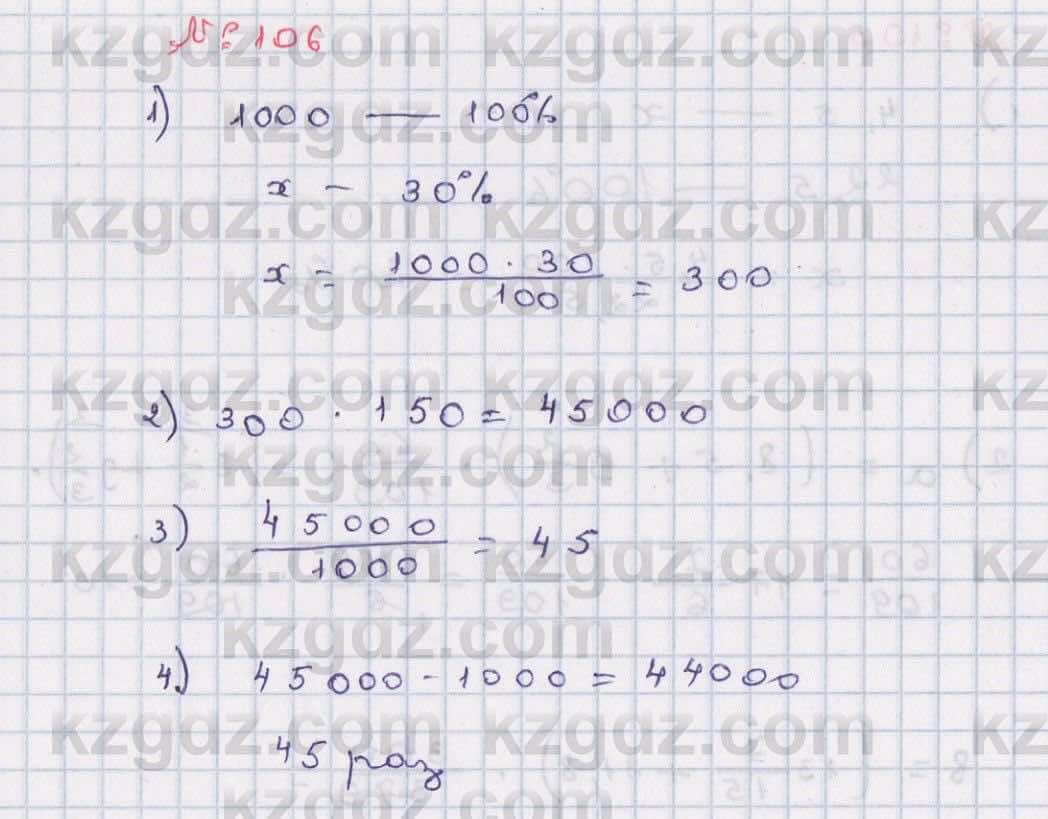 № 106
1) 1000 — 100%
x — 30%
x = 1000 · 30 / 100 = 300
2) 300 · 150 = 45000
3) 45000 / 1000 = 45
4) 45000 - 1000 = 44000
45 раз
kzgdz.com